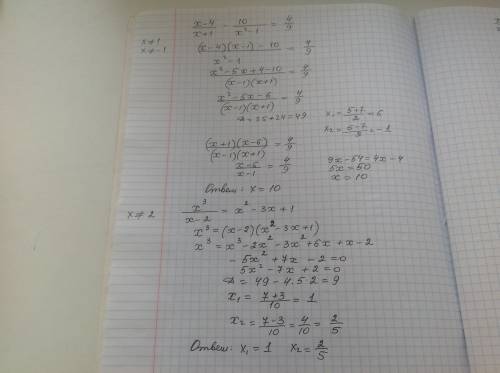 (x-4)/(x+1) - 10/(x²-1) = 4/9
x≠1
x≠-1
((x-4)(x-1)-10)/(x²-1) = 4/9
(x²-5x+4-10)/((x-1)(x+1)) = 4/9
(x²-5x-6)/((x-1)(x+1)) = 4/9
D = 25+24=49
x₁ = (5+7)/2 = 6
x₂ = (5-7)/2 = -1
((x+1)(x-6))/((x-1)(x+1)) = 4/9
(x-6)/(x-1) = 4/9
9x-54=4x-4
5x=50
x=10
Ответ: x=10
x≠2
x³/(x-2) = x²-3x+1
x³=(x-2)(x²-3x+1)
x³=x³-2x²-3x²+6x+x-2
-5x²+7x-2=0
5x²-7x+2=0
D = 49-4.5.2=9
x₁ = (7+3)/10 = 1
x₂ = (7-3)/10 = 4/10 = 2/5
Ответ: x₁=1 x₂=2/5